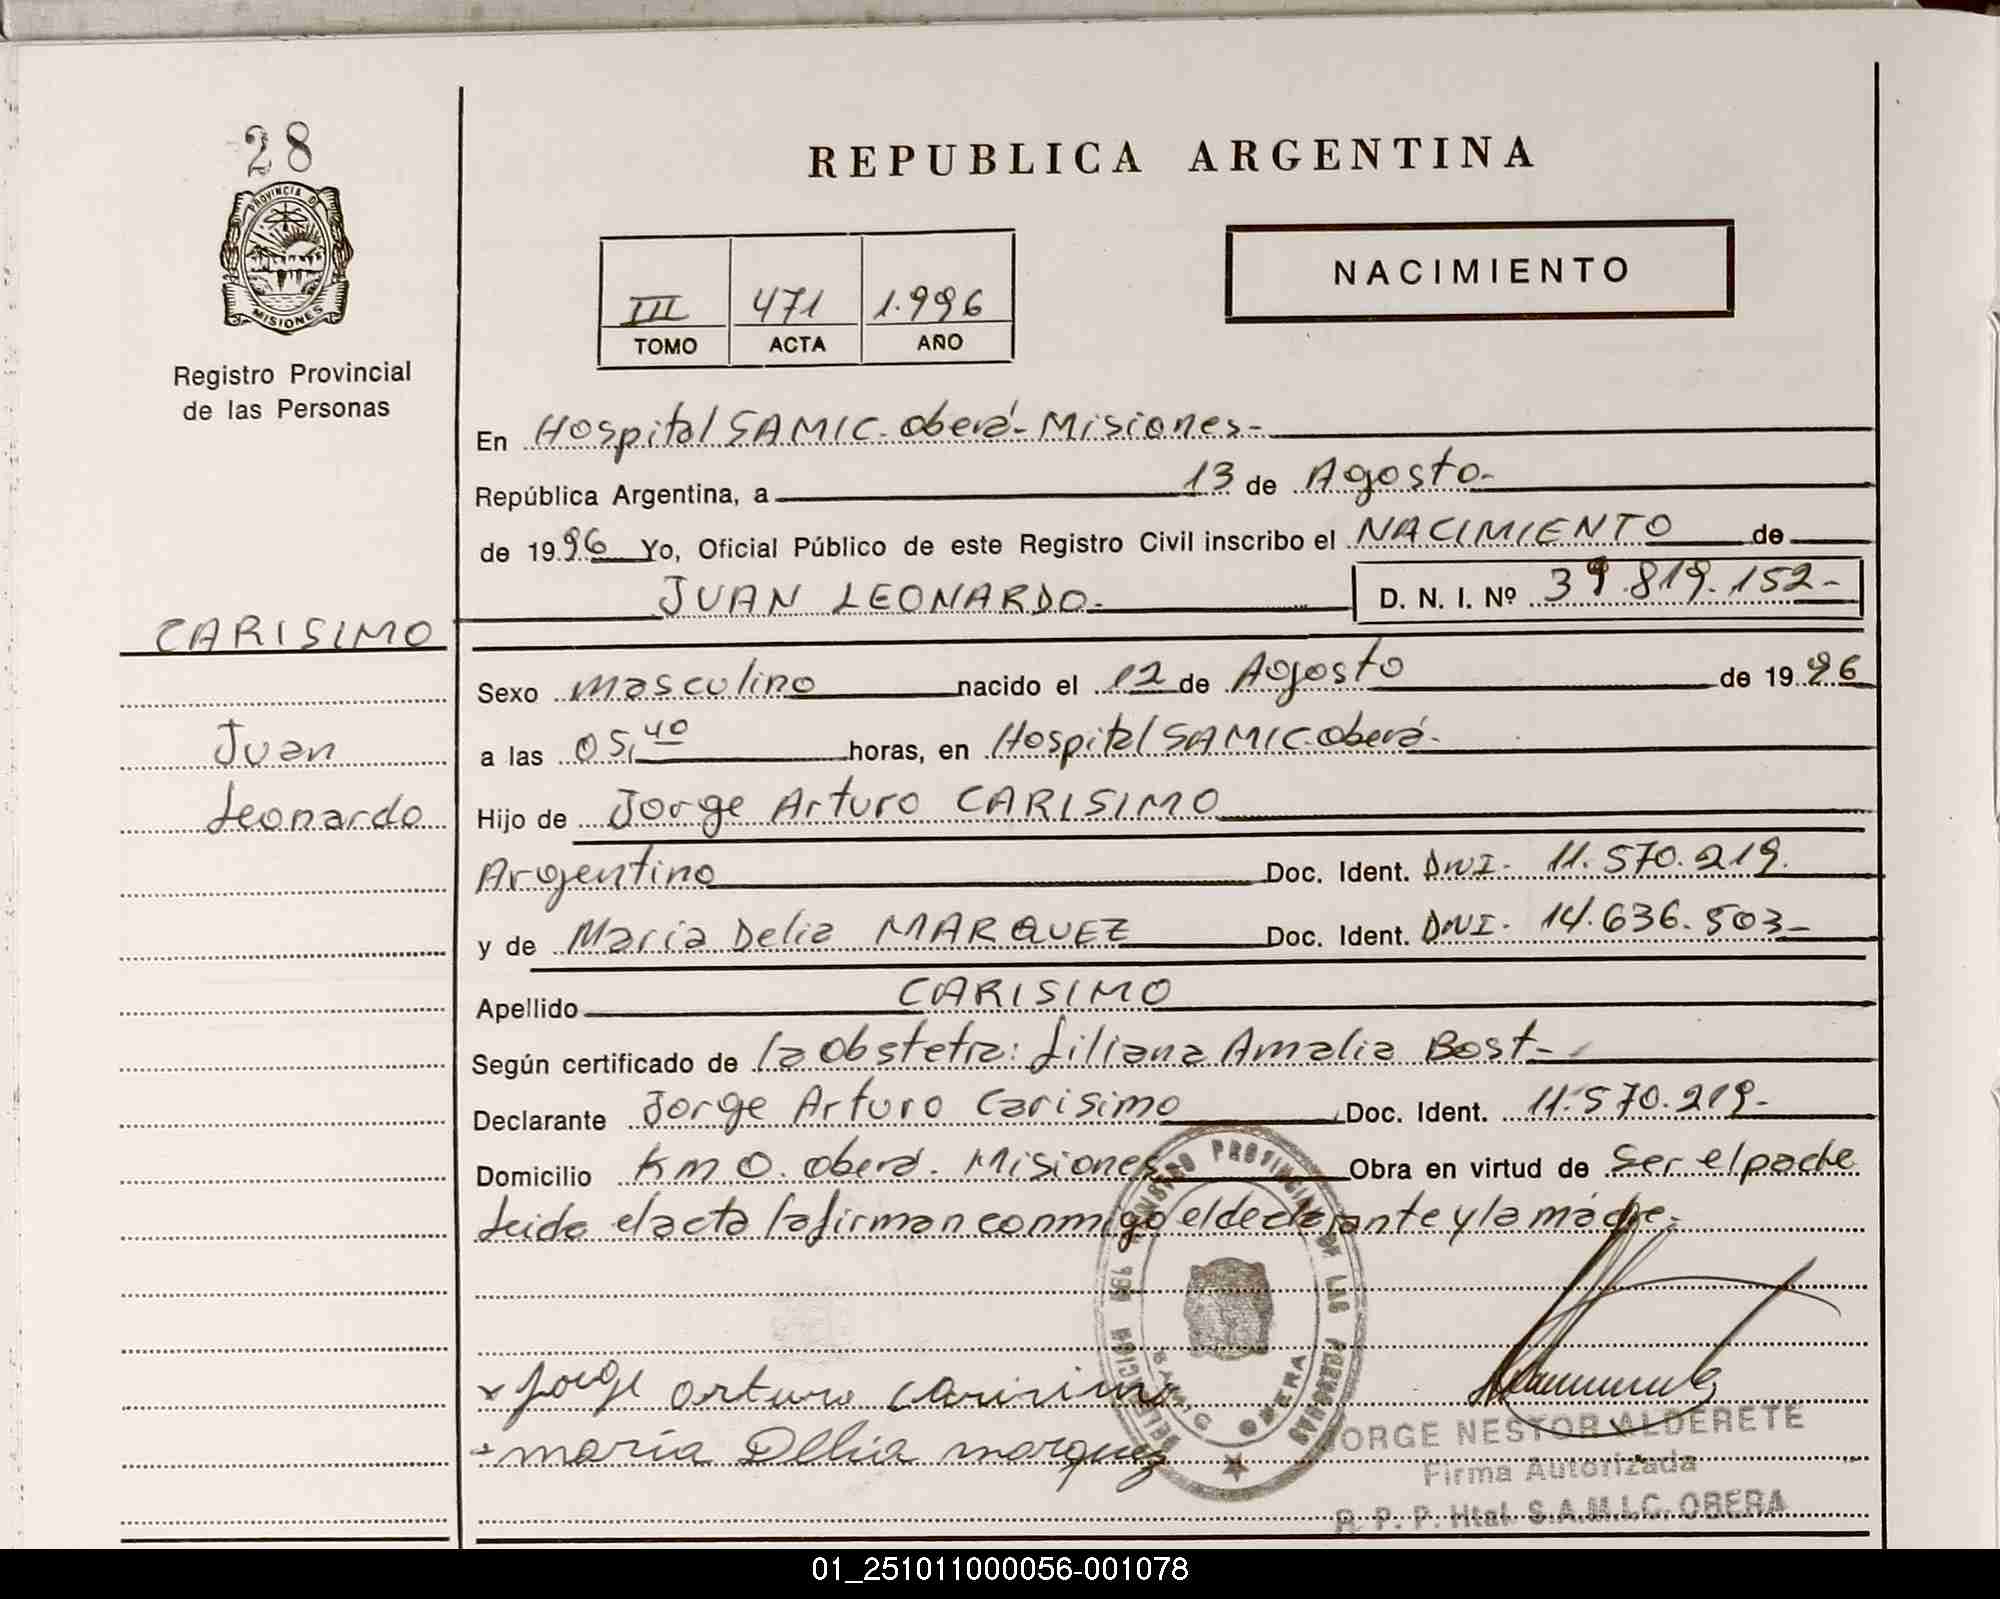 28
PROVINCIA DE
MISIONES
Registro Provincial
de las Personas
CARISIMO
Juan
Leonardo
REPUBLICA ARGENTINA
III 471 1.996
TOMO ACTA AÑO
NACIMIENTO
En Hospital SAMIC. Oberá - Misiones -
República Argentina, a 13 de Agosto -
de 1996 Yo, Oficial Público de este Registro Civil inscribo el NACIMIENTO de
JUAN LEONARDO - D. N. I. Nº 39.819.152 -
Sexo masculino nacido el 12 de Agosto de 1996
a las 05,40 horas, en Hospital SAMIC. Oberá -
Hijo de Jorge Arturo CARISIMO
Argentino Doc. Ident. DNI - 11.570.219.
y de Maria Delia MARQUEZ Doc. Ident. DNI - 14.636.503 -
Apellido CARISIMO
Según certificado de la Obstetra: Liliana Amalia Bost -
Declarante Jorge Arturo Carisimo Doc. Ident. 11.570.219 -
Domicilio Km 0. Oberá. Misiones Obra en virtud de ser el padre
Leida el acta la firman conmigo el declarante y la madre -
DELEGACION DEL REGISTRO PROVINCIAL DE LAS PERSONAS
S.A.M.I.C. OBERA
x Jorge arturo carisimo
+ maría Delia marquez
JORGE NESTOR ALDERETE
Firma Autorizada
R. P. P. Htal. S.A.M.I.C. OBERA
01_251011000056-001078